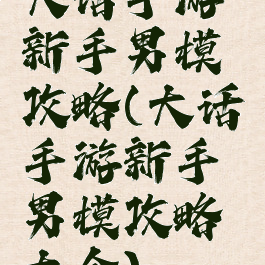 大话手游
新手男模
攻略(大话
手游新手
男模攻略
大全)